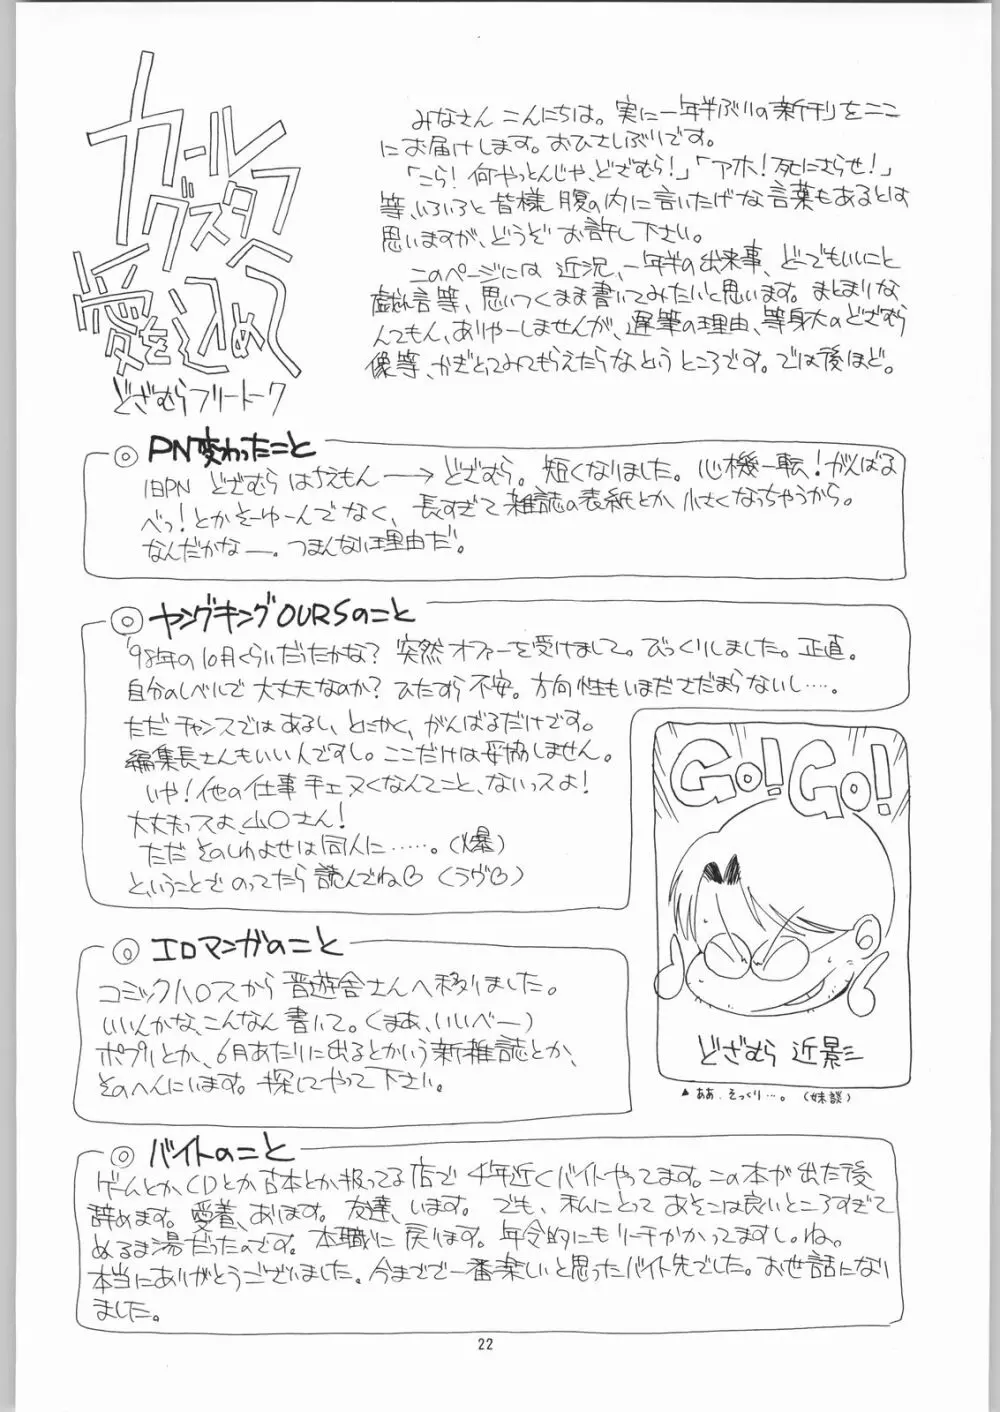 カール
グスタフへ
愛を込めて
どざむらフリートーク
みなさん こんにちは。実に一年半ぶりの新刊をここ
にお届けします。おひさしぶりです。
「こら!何やっとんじゃ、どざむら!」「アホ!死にさらせ!」
等、いろいろと皆様腹の内に言いたげな言葉もあるとは
思いますが、どうぞお許し下さい。
このページには 近況、一年半の出来事、どーでもいいこと
戯れ言等、思いつくまま書いてみたいと思います。まとまりな
んてもん、ありゃーしませんが、遅筆の理由、等身大のどざむら
像等、かぎとってみてもらえたらなというところです。では後ほど。
◎ PN変わったこと
旧PN どざむらはちえもん ──→ どざむら。短くなりました。心機一転!がんばる
べっ!とかそーゆーんでなく、長すぎて雑誌の表紙とか、小さくなっちゃうから。
なんだかなー。つまんない理由だ。
◎ ヤングキングOURSのこと
'98年の10月くらいだったかな?突然オファーを受けまして。びっくりしました。正直。
自分のレベルで大丈夫なのか?ひたすら不安。方向性もいまださだまらないし…。
ただ チャンスではあるし、とにかく、がんばるだけです。
編集長さんもいい人ですし。ここだけは妥協しません。
いや!他の仕事手ェヌくなんてこと、ないっスよ!
大丈夫っスよ、山○さん!
ただ そのしわよせは同人に……。(爆)
ということでのってたら読んでね♡(ラヴ♡)
Go! Go!
どざむら 近影
▲ああ、そっくり…。(妹談)
◎ エロマンガのこと
コミックハロスから晋遊舎さんへ移りました。
いいんかな、こんなん書いて。(まあ、いいべー)
ポプリとか、6月あたりに出るとかいう新雑誌とか、
そのへんにいます。探してやって下さい。
◎ バイトのこと
ゲームとかCDとか古本とか扱ってる店で4年近くバイトやってます。この本が出た後
辞めます。愛着、あります。友達、います。でも、私にとってあそこは良いところすぎて
ぬるま湯だったのです。本職に戻ります。年令的にもリーチかかってますし。ね。
本当にありがとうございました。今までで一番楽しいと思ったバイト先でした。お世話になり
ました。
22